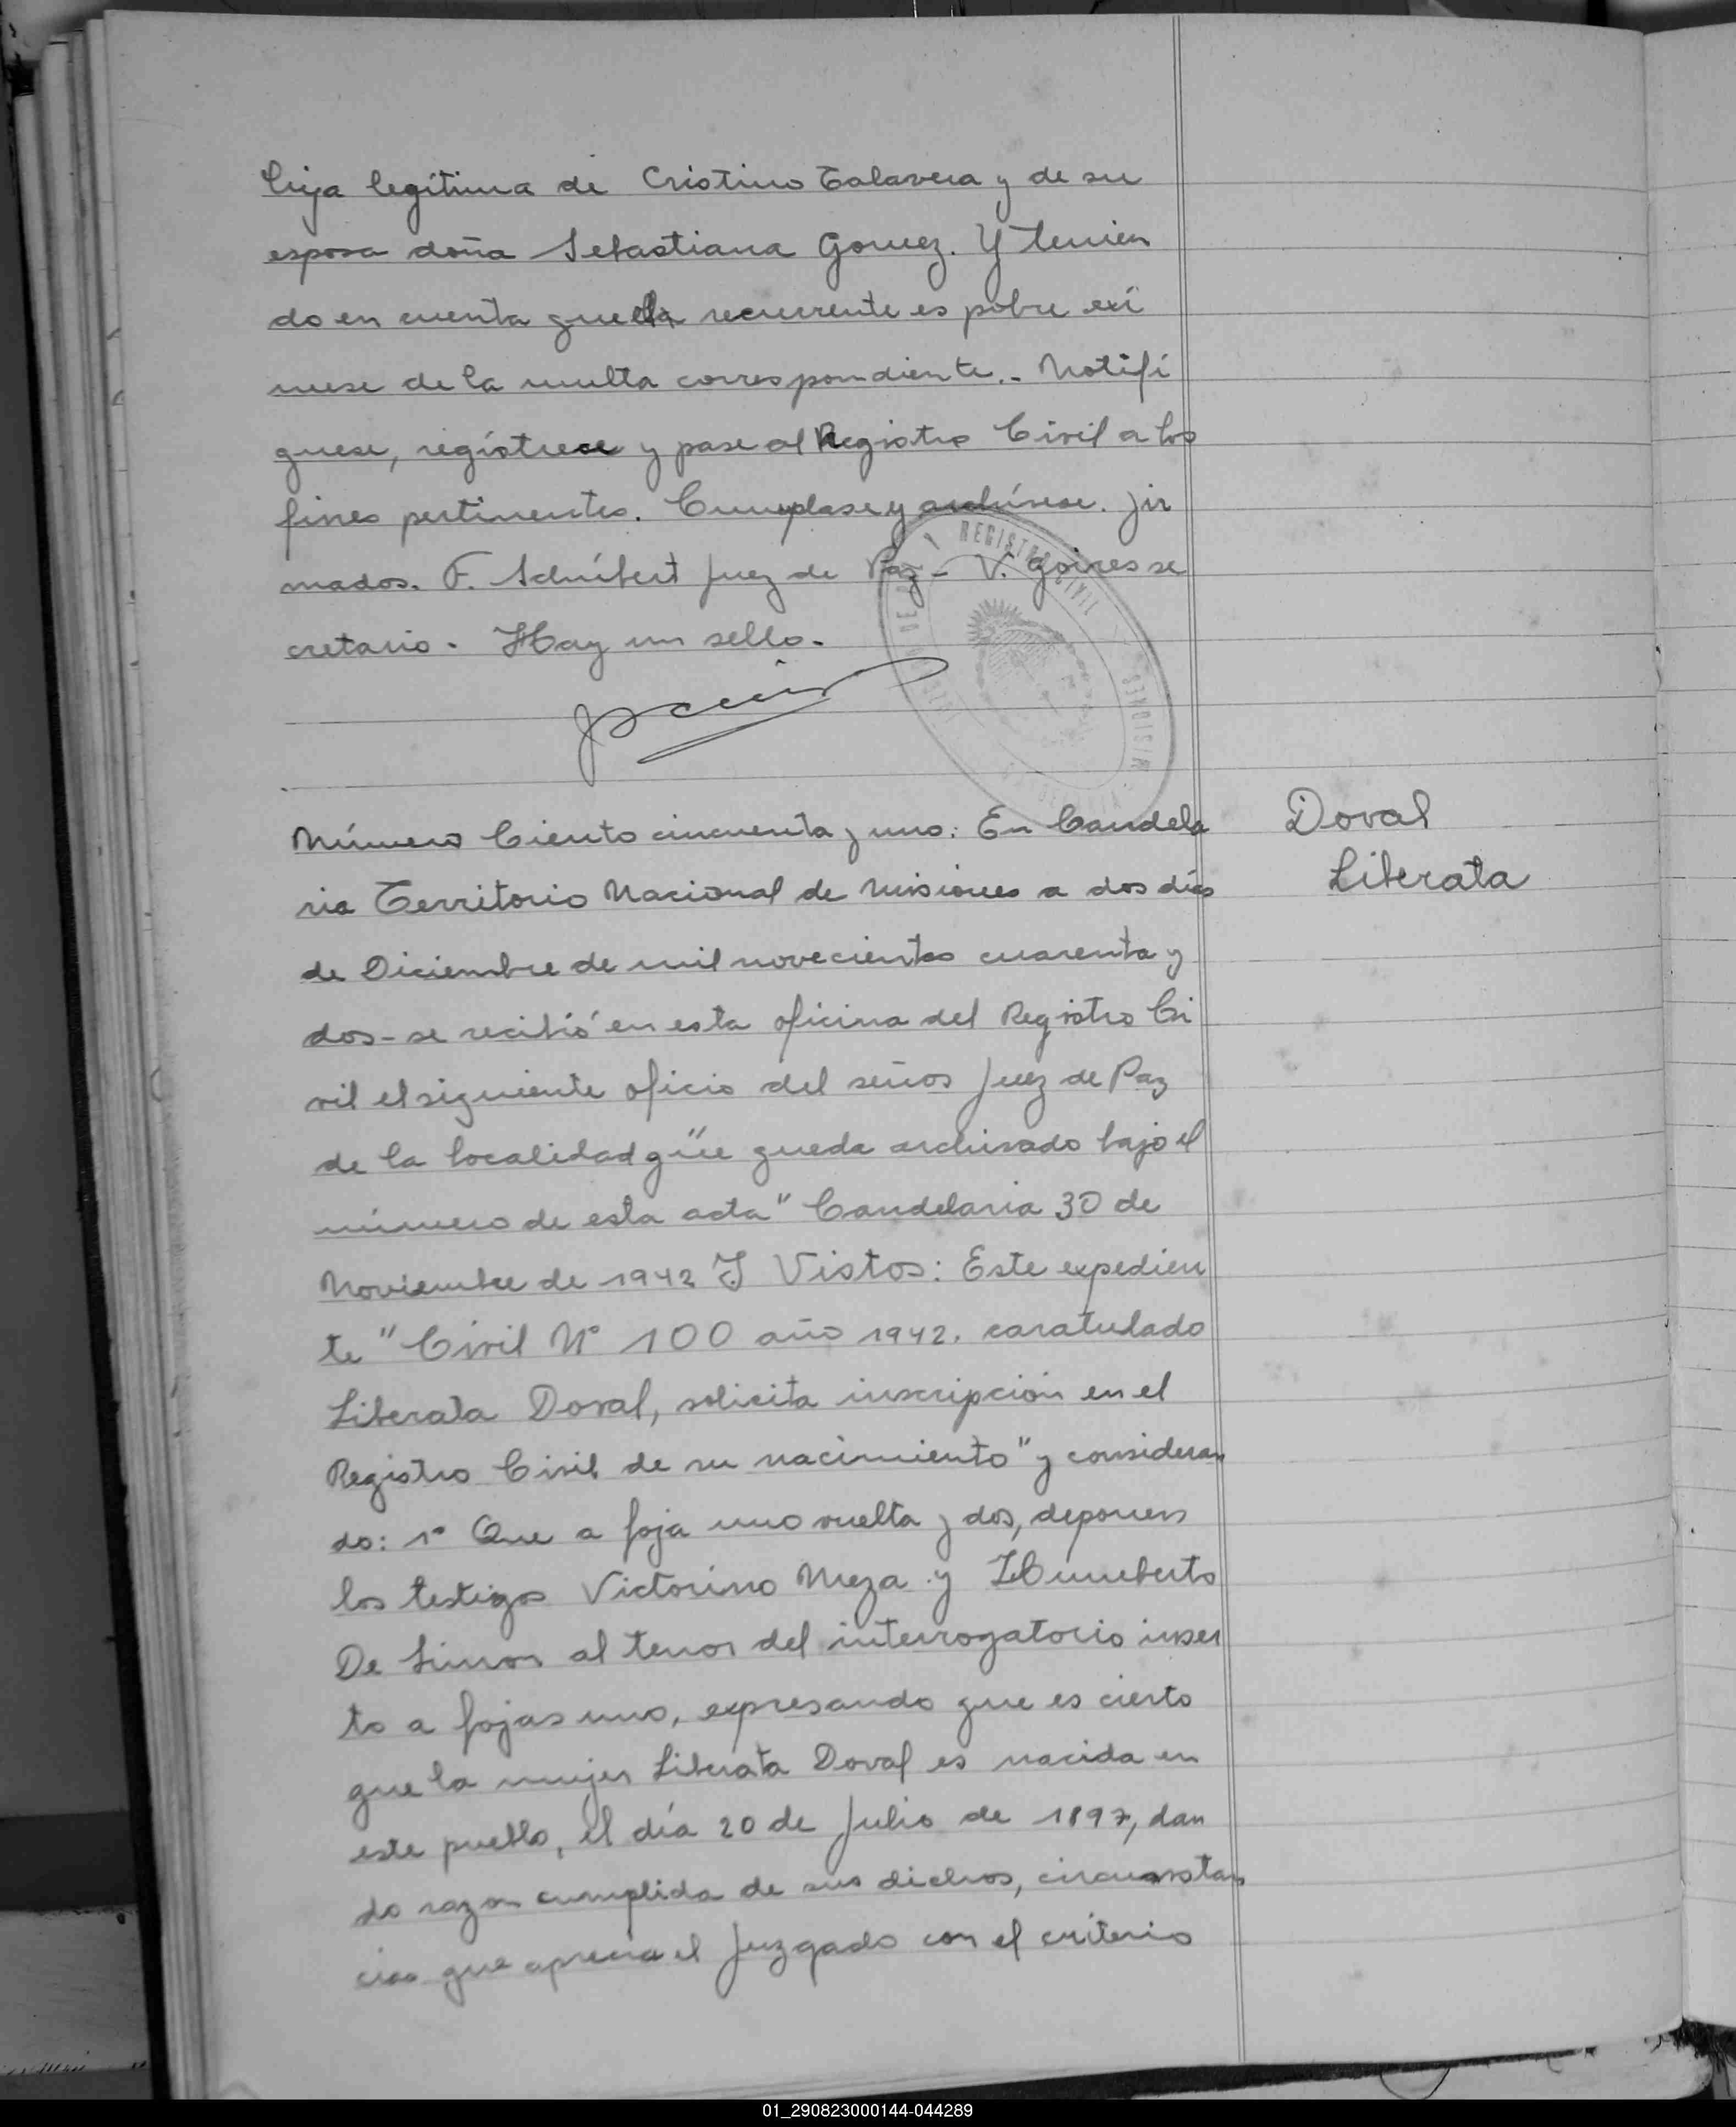 hija legítima de Cristino Talavera y de su
esposa doña Sebastiana Gomez. Y tenien
do en cuenta que la recurrente es pobre exi
mese de la multa correspondiente.- Notifí
quese, regístrese y pase al Registro Civil a los
fines pertinentes. Cumplase y archívese. Fir
mados. F. Schúbert Juez de Paz - V. Goires se
cretario - Hay un sello.
REGISTRO CIVIL
MISIONES
Número Ciento cincuenta y uno: En Candela
Doval
Liberata
ria Territorio Nacional de Misiones a dos días
de Diciembre de mil novecientos cuarenta y
dos - se recibió en esta oficina del Registro Ci
vil el siguiente oficio del señor Juez de Paz
de la localidad que queda archivado bajo el
número de esta acta " Candelaria 30 de
Noviembre de 1942 Y Vistos: Este expedien
te " Civil Nº 100 año 1942. caratulado
Liberata Doval, solicita inscripción en el
Registro Civil de su nacimiento" y consideran
do: 1º Que a foja uno vuelta y dos, deponen
los testigos Victorino Meza y Humberto
De Limos al tenor del interrogatorio inser
to a fojas uno, expresando que es cierto
que la mujer Liberata Doval es nacida en
este pueblo, el día 20 de Julio de 1897, dan
do razon cumplida de sus dichos, circunstan
cias que aprecia el Juzgado con el criterio
01_290823000144-044289